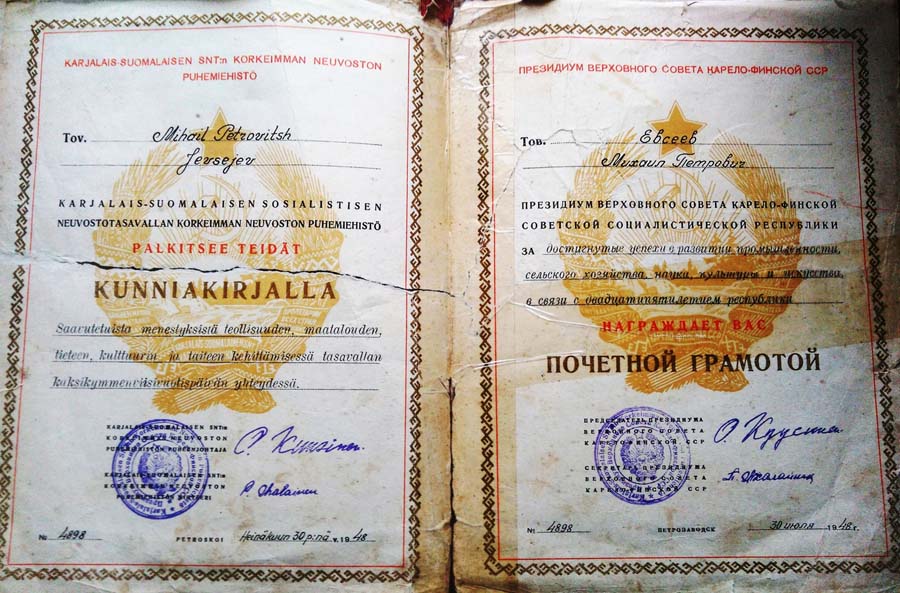 KARJALAIS-SUOMALAISEN SNT:n KORKEIMMAN NEUVOSTON
PUHEMIEHISTÖ
Tov. Mihail Petrovitsh
Jevsejev
KARJALAIS-SUOMALAISEN SOSIALISTISEN
NEUVOSTOTASAVALLAN KORKEIMMAN NEUVOSTON PUHEMIEHISTÖ
PALKITSEE TEIDÄT
KUNNIAKIRJALLA
Saavutetuista menestyksistä teollisuuden, maatalouden,
tieteen, kulttuurin ja taiteen kehittämisessä tasavallan
kaksikymmenviisivuotispäivän yhteydessä.
KARJALAIS-SUOMALAISEN SNT:n
KORKEIMMAN NEUVOSTON
PUHEMIEHISTÖN PUHEENJOHTAJA
KARJALAIS-SUOMALAISEN SNT:n
KORKEIMMAN NEUVOSTON
PUHEMIEHISTÖN SIHTEERI
№ 4898 PETROSKOI Heinäkuun 30 p:nä v. 1948
ПРЕЗИДИУМ ВЕРХОВНОГО СОВЕТА КАРЕЛО-ФИНСКОЙ ССР
Тов. Евсеев
Михаил Петрович
ПРЕЗИДИУМ ВЕРХОВНОГО СОВЕТА КАРЕЛО-ФИНСКОЙ
СОВЕТСКОЙ СОЦИАЛИСТИЧЕСКОЙ РЕСПУБЛИКИ
ЗА достигнутые успехи в развитии промышленности,
сельского хозяйства, науки, культуры и искусства,
в связи с двадцатипятилетием республики
НАГРАЖДАЕТ ВАС
ПОЧЕТНОЙ ГРАМОТОЙ
ПРЕДСЕДАТЕЛЬ ПРЕЗИДИУМА
ВЕРХОВНОГО СОВЕТА
КАРЕЛО-ФИНСКОЙ ССР
СЕКРЕТАРЬ ПРЕЗИДИУМА
ВЕРХОВНОГО СОВЕТА
КАРЕЛО-ФИНСКОЙ ССР
№ 4898 ПЕТРОЗАВОДСК 30 июля 1948 г.